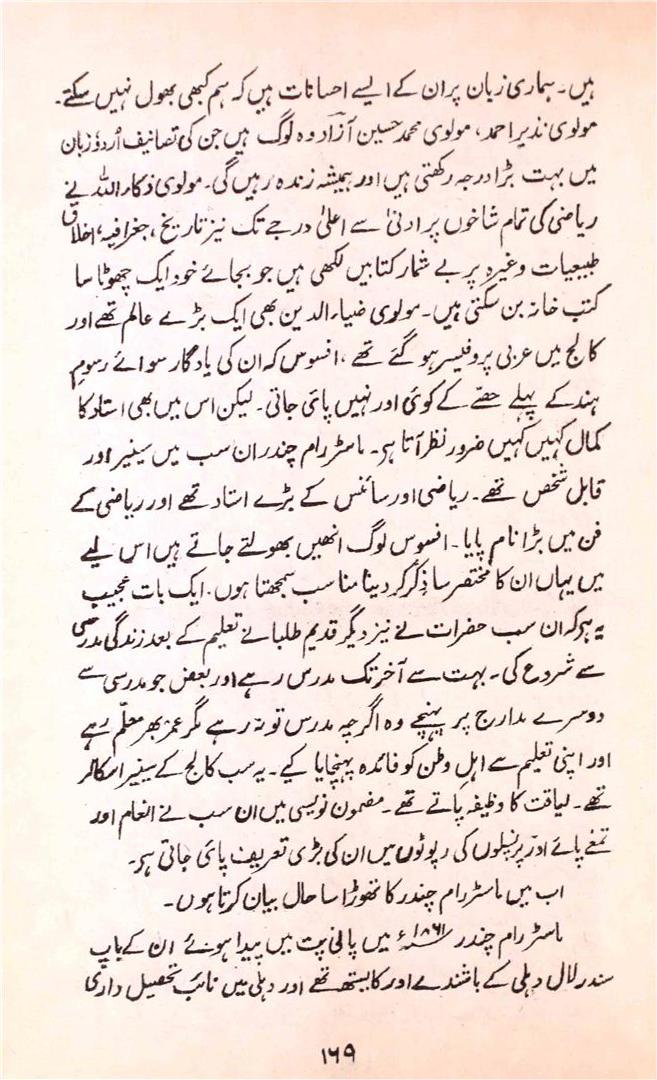 ہیں۔ ہماری زبان پر ان کے ایسے احسانات ہیں کہ ہم کبھی بھول نہیں سکتے۔
مولوی نذیر احمد، مولوی محمد حسین آزاد وہ لوگ ہیں جن کی تصانیف اُردو زبان
میں بہت بڑا درجہ رکھتی ہیں اور ہمیشہ زندہ رہیں گی۔ مولوی ذکاء اللہ نے
ریاضی کی تمام شاخوں پر ادنیٰ سے اعلیٰ درجے تک نیز تاریخ، جغرافیہ، اخلاق
طبیعیات وغیرہ پر بے شمار کتابیں لکھی ہیں جو بجائے خود ایک چھوٹا سا
کتب خانہ بن سکتی ہیں۔ مولوی ضیاء الدین بھی ایک بڑے عالم تھے اور
کالج میں عربی پروفیسر ہو گئے تھے، افسوس کہ ان کی یادگار سوائے رسوم
ہند کے پہلے حصّے کے کوئی اور نہیں پائی جاتی۔ لیکن اس میں بھی استاد کا
کمال کہیں کہیں ضرور نظر آتا ہی۔ ماسٹر رام چندر ان سب میں سینیر اور
قابل شخص تھے۔ ریاضی اور سائنس کے بڑے استاد تھے اور ریاضی کے
فن میں بڑا نام پایا۔ افسوس لوگ انھیں بھولتے جاتے ہیں اس لیے
میں یہاں ان کا مختصر سا ذکر کر دینا مناسب سمجھتا ہوں۔ ایک بات عجیب
یہ ہی کہ ان سب حضرات نے نیز دیگر قدیم طلبا نے تعلیم کے بعد زندگی مدرسی
سے شروع کی۔ بہت سے آخر تک مدرس رہے اور بعض جو مدرسی سے
دوسرے مدارج پر پہنچے وہ اگرچہ مدرس تو نہ رہے مگر عمر بھر معلّم رہے
اور اپنی تعلیم سے اہلِ وطن کو فائدہ پہنچایا کیے۔ یہ سب کالج کے سینیر اسکالر
تھے۔ لیاقت کا وظیفہ پاتے تھے۔ مضمون نویسی میں ان سب نے انعام اور
تمغے پائے اور پرنسپلوں کی رپوٹوں میں ان کی بڑی تعریف پائی جاتی ہی۔
اب میں ماسٹر رام چندر کا تھوڑا سا حال بیان کرتا ہوں۔
ماسٹر رام چندر ۱۸۶۱ء میں پانی پت میں پیدا ہوئے ان کے باپ
سندر لال دہلی کے باشندے اور کایستھ تھے اور دہلی میں نائب تحصیل داری
۱۶۹